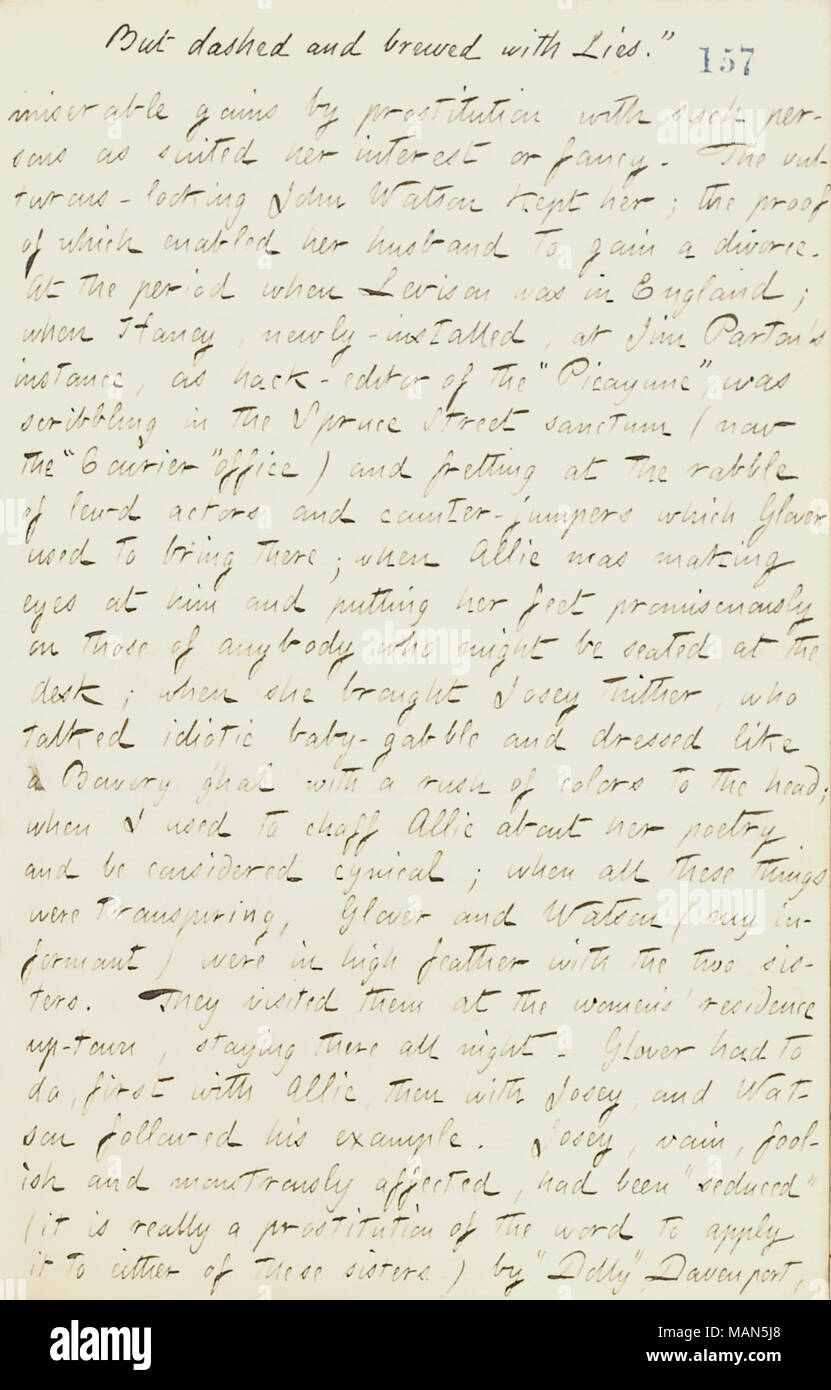 But dashed and brewed with Lies."
157
miserable gains by prostitution with such per-
sons as suited her interest or fancy. The vul-
turous-looking John Watson kept her; the proof
of which enabled her husband to gain a divorce.
At the period when Levison was in England;
when Haney, newly-installed, at Jim Parton's
instance, as hack-editor of the "Picayune", was
scribbling in the Spruce Street sanctum (now
the "Courier" office) and fretting at the rabble
of lewd actors and counter-jumpers which Glover
used to bring there; when Allie was making
eyes at him and putting her feet promiscuously
on those of anybody who might be seated at the
desk; when she brought Josey thither, who
talked idiotic baby-gabble and dressed like
a Bowery g'hal with a rush of colors to the head;
when I used to chaff Allie about her poetry
and be considered cynical; when all these things
were transpiring, Glover and Watson (my in-
formant) were in high feather with the two sis-
ters. They visited them at the women's residence
up-town, staying there all night. Glover had to
do, first with Allie, then with Josey, and Wat-
son followed his example. Josey, vain, fool-
ish and monstrously affected, had been "seduced"
(it is really a prostitution of the word to apply
it to either of these sisters) by "Dolly" Davenport,
alamy
Image ID: MAN5J8
www.alamy.com